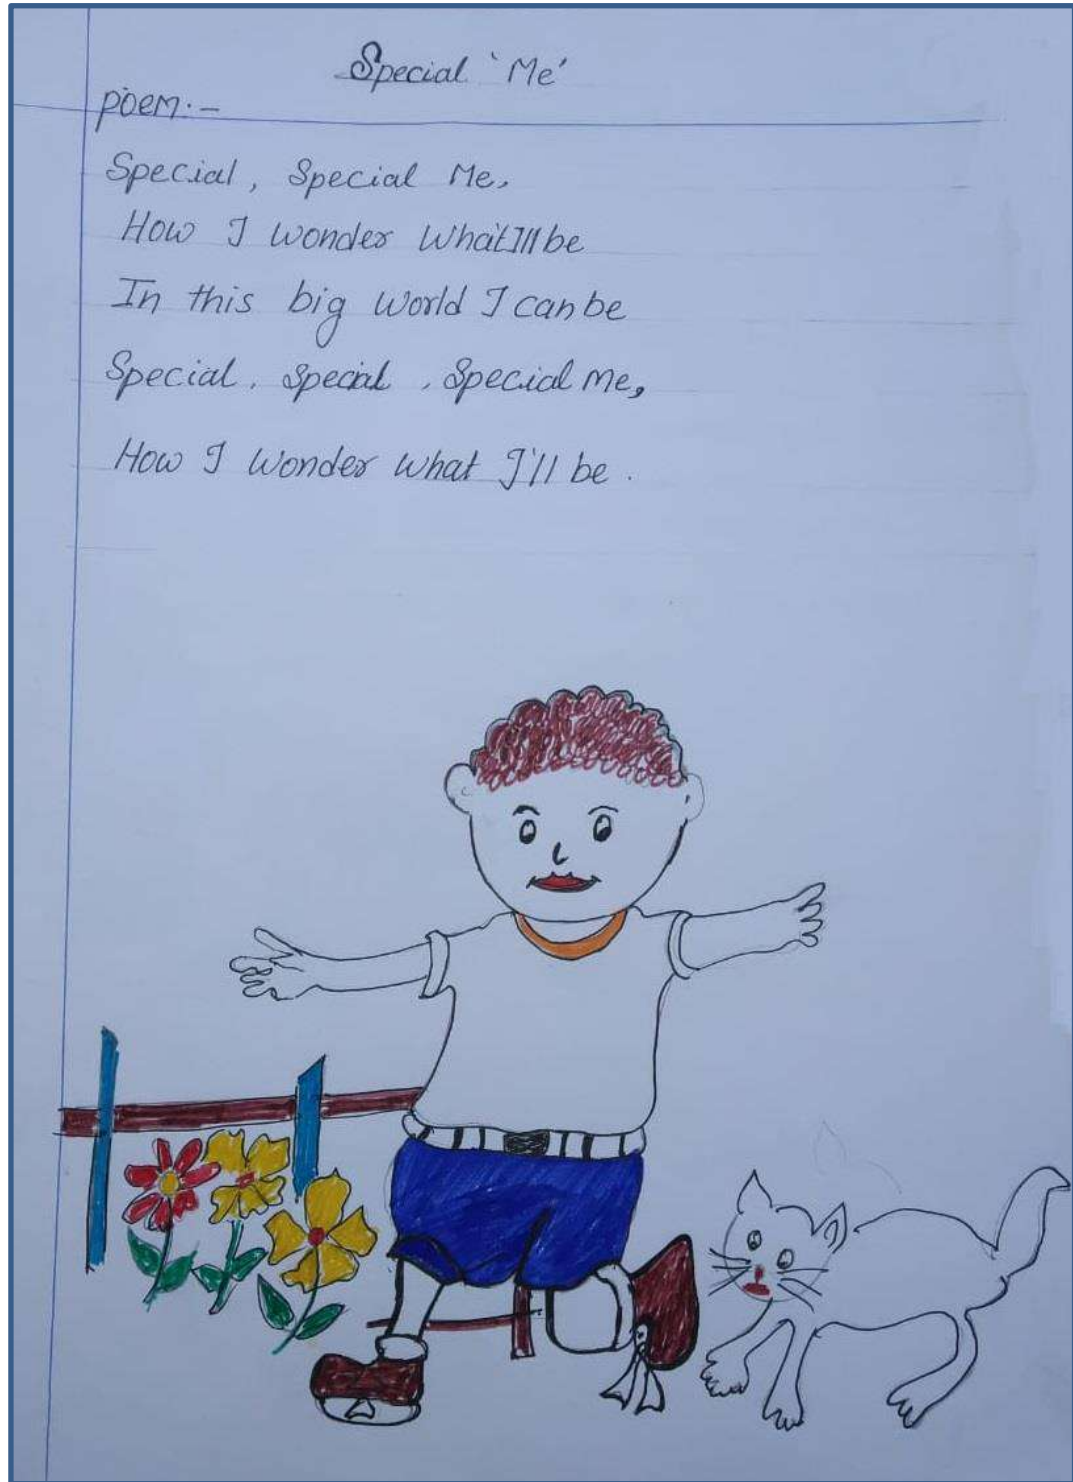 Special 'Me'
poem:-
Special, Special Me,
How I wonder What I'll be
In this big world I can be
Special, Special, Special me,
How I wonder what I'll be.